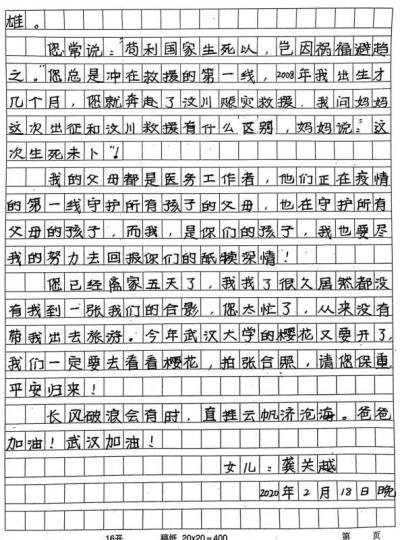 雄。
您常说:"苟利国家生死以,岂因祸福避趋
之。"您总是冲在救援的第一线,2008年我出生才
几个月,您就奔赴了汶川赈灾救援。我问妈妈
这次出征和汶川救援有什么区别,妈妈说:"这
次生死未卜"!
我的父母都是医务工作者,他们正在疫情
的第一线守护所有孩子的父母,也在守护所有
父母的孩子,而我,是你们的孩子,我也要尽
我的努力去回报你们的舐犊深情!
您已经离家五天了,我找了很久居然都没
有找到一张我们的合影,您太忙了,从来没有
带我出去旅游。今年武汉大学的樱花又要开了,
我们一定要去看看樱花,拍张合照,请您保重,
平安归来!
长风破浪会有时,直挂云帆济沧海。爸爸
加油!武汉加油!
女儿:龚关越
2020年2月18日晚
16开 稿纸 20×20=400 第 页